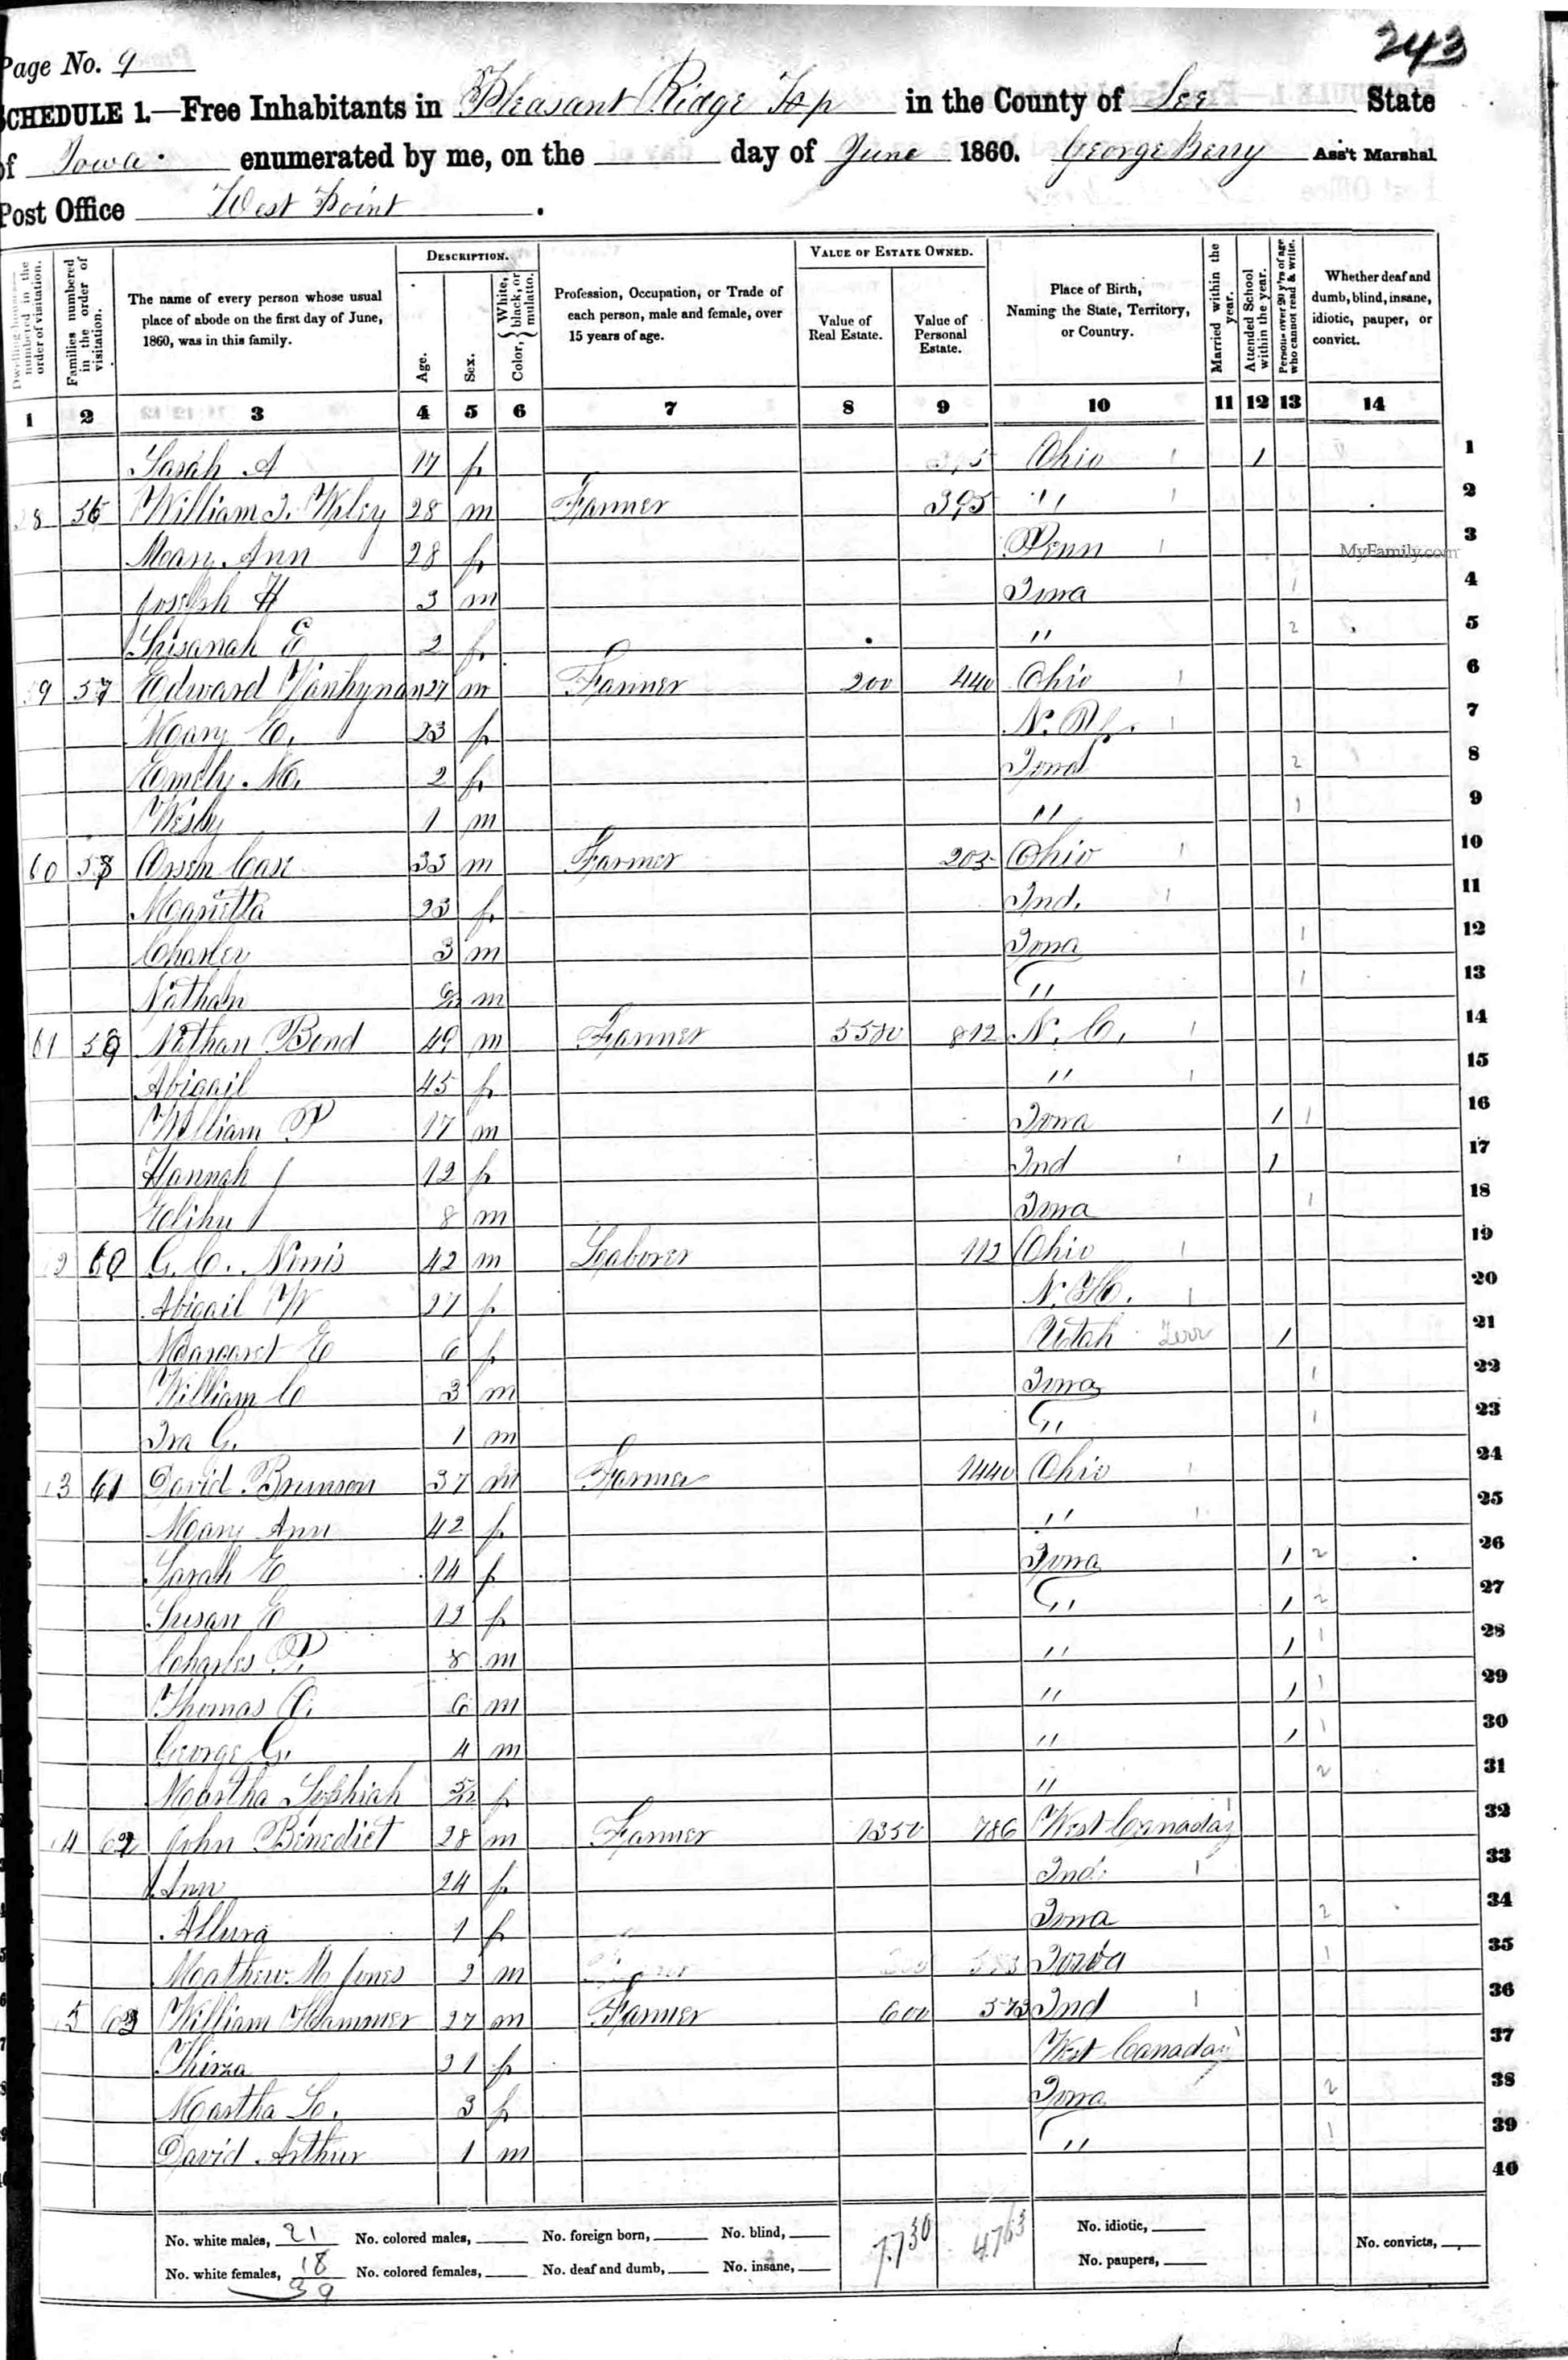 243
Page No. 9
SCHEDULE 1.—Free Inhabitants in Pleasant Ridge Tsp in the County of Lee State
of Iowa enumerated by me, on the day of June 1860. George Berry Ass't Marshal
Post Office West Point .
Dwelling-houses numbered in the order of visitation.
Families numbered in the order of visitation.
The name of every person whose usual place of abode on the first day of June, 1860, was in this family.
DESCRIPTION.
Age.
Sex.
Color, { White, black, or mulatto.
Profession, Occupation, or Trade of each person, male and female, over 15 years of age.
VALUE OF ESTATE OWNED.
Value of Real Estate.
Value of Personal Estate.
Place of Birth, Naming the State, Territory, or Country.
Married within the year.
Attended School within the year.
Persons over 20 y'rs of age who cannot read & write.
Whether deaf and dumb, blind, insane, idiotic, pauper, or convict.
1 2 3 4 5 6 7 8 9 10 11 12 13 14
Sarah A 17 f Ohio 1 1
8 56 William J. Wiley 28 m Farmer 395 " 2
Mary Ann 28 f Penn 3
MyFamily.com
Joseph H 3 m Iowa 1 4
E 2 f " 2 5
9 57 Edward Vanhynan 27 m Farmer 200 440 Ohio 6
Mary E. 23 f 7
Emely M. 2 f Iowa 2 8
Wesly 1 m " 1 9
60 58 Orsen Case 33 m Farmer 205 Ohio 10
Marietta 23 f Ind. 11
Charles 3 m Iowa 1 12
Nathan m " 1 13
61 59 Nathan Bond 49 m Farmer 5580 812 N. C. 14
Abigail 45 f " 15
William P 17 m Iowa 1 1 16
Hannah J 12 f Ind 1 17
Elihu J 8 m Iowa 1 18
2 60 G. C. Norris 42 m Laborer 112 Ohio 19
Abigail W 27 f N. H. 20
Margaret E 6 f Utah Terr 1 21
William C 3 m Iowa 1 22
Ira G. 1 m " 1 23
3 61 David Brunson 37 m Farmer 1440 Ohio 24
Mary Ann 42 f " 25
Sarah E 14 f Iowa 1 2 26
Susan E 12 f " 1 2 27
Charles P. 8 m " 1 1 28
Thomas O. 6 m " 1 1 29
George G. 4 m " 1 1 30
Martha Sophiah 5/12 f " 2 31
4 62 John Benedict 28 m Farmer 1350 786 West Canada 32
Ann 24 f Ind. 33
Allura 1 f Iowa 2 34
Mathew M Jones 2 m Iowa 1 35
5 63 William Hammer 27 m Farmer 600 573 Ind 36
Thirza 21 f West Canada 37
Martha L. 3 f Iowa 2 38
David Arthur 1 m " 1 39
40
No. white males, 21 No. colored males, No. foreign born, No. blind, 7730 4763 No. idiotic, No. convicts,
No. white females, 18 No. colored females, No. deaf and dumb, No. insane, No. paupers,
39